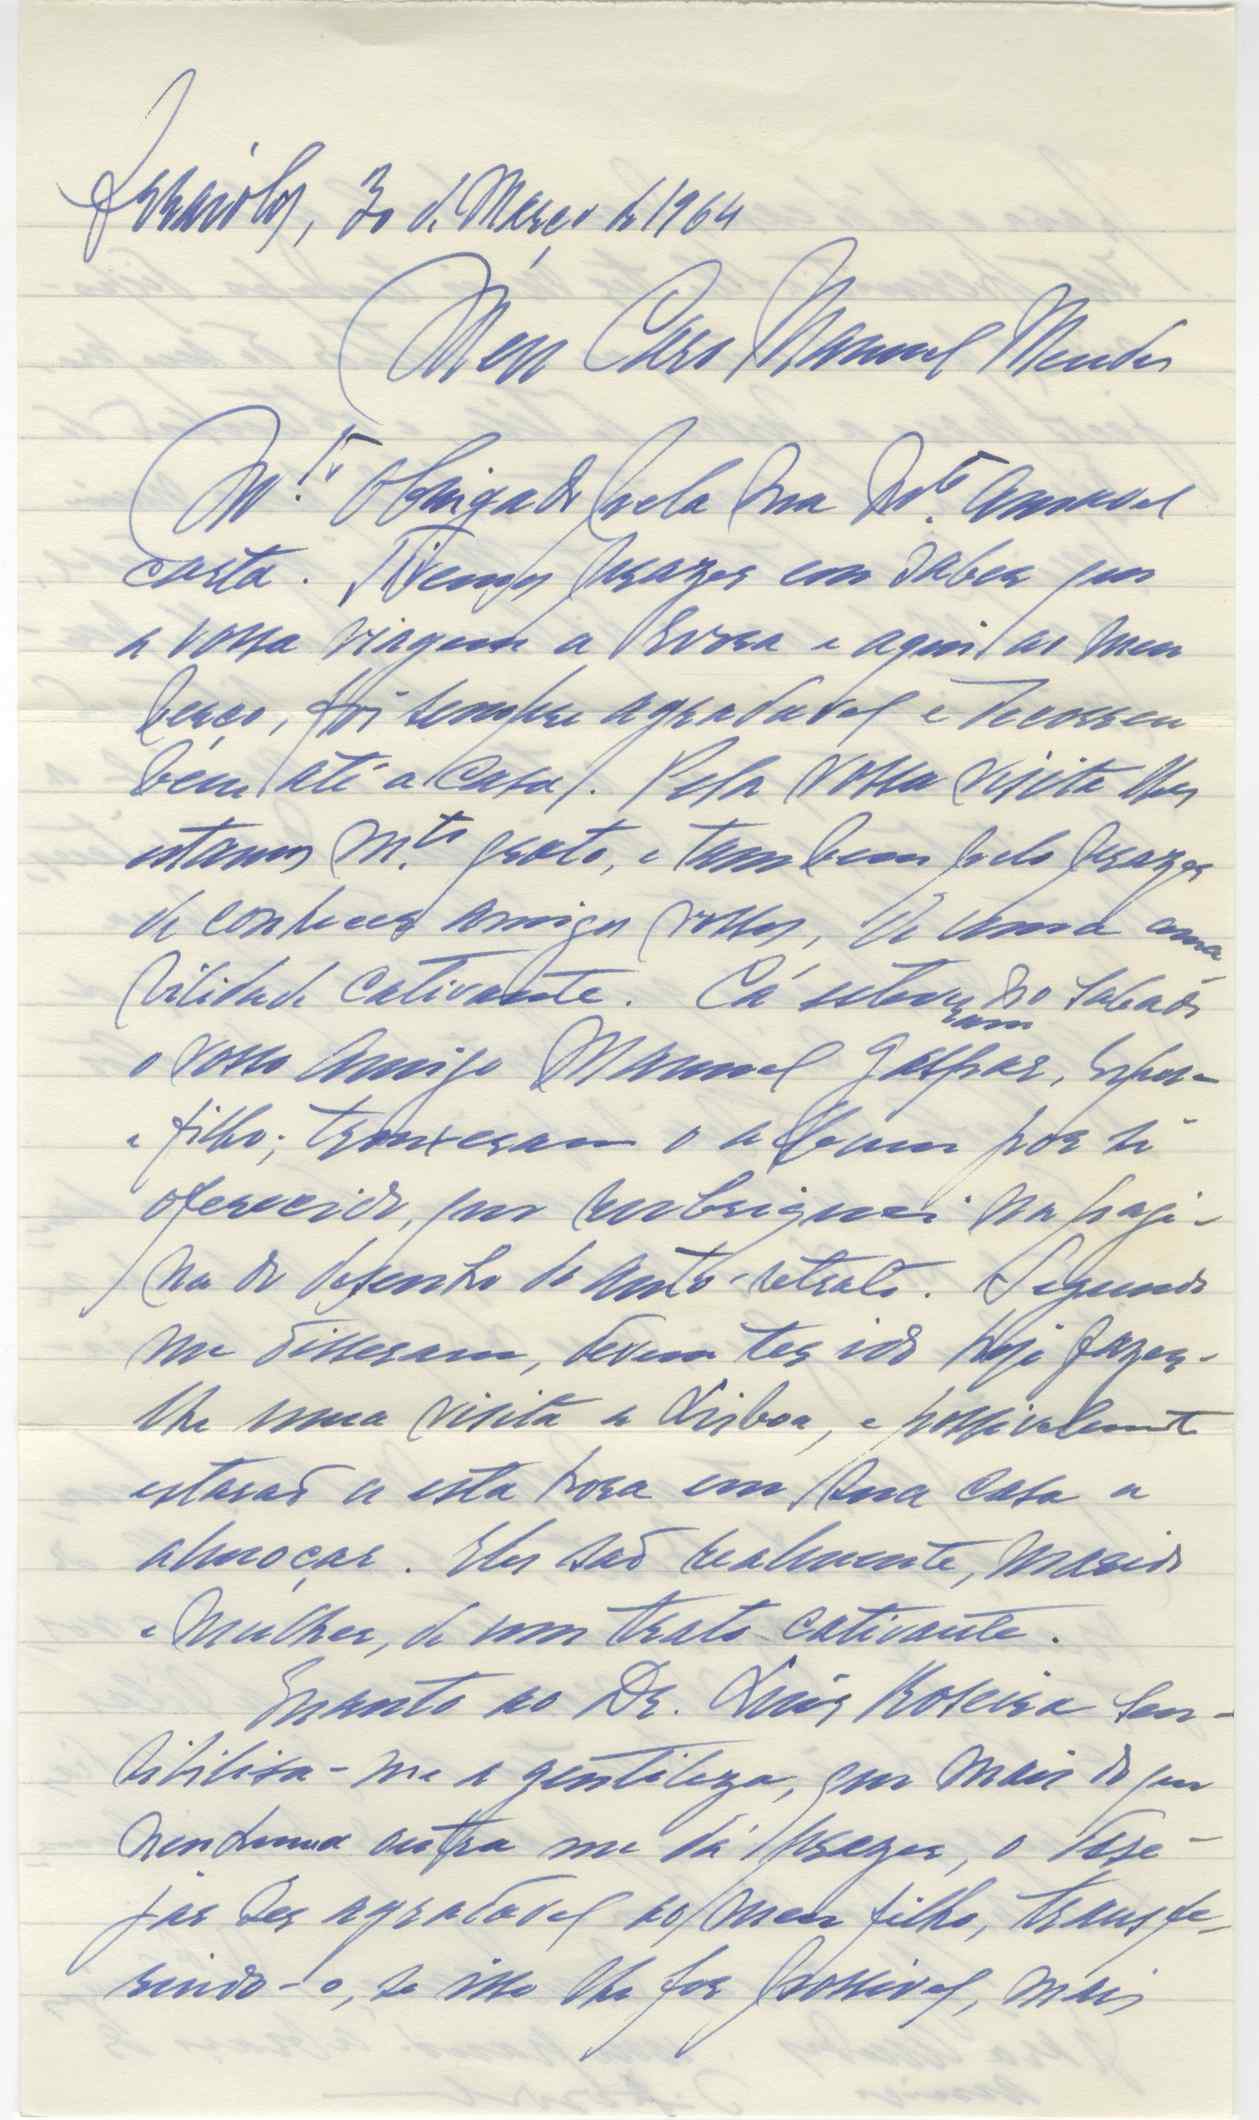 Arraiolos, 30 de Março de 1964
Meu Caro Manuel Mendes
M.to obrigado pela sua m.to amavel
carta. Tivemos prazer em saber que
a vossa viagem a Evora e aqui ao meu
berço, foi sempre agradavel e decorreu
bem até a casa. Pela vossa visita lhes
estamos m.to gratos, e tambem pelo prazer
de conhecer amigos vossos, de uma ama-
bilidade cativante. Cá estiveram no sabado
o vosso amigo Manuel Gaspar, esposa
e filho; trouxeram o album por si
oferecido, que rubriquei na pagi-
na do desenho do auto-retrato. Segundo
me disseram, devem ter ido hoje fazer-
lhe uma visita a Lisboa, e possivelmente
estaraõ a esta hora em sua casa a
almoçar. Eles saõ realmente, marido
e mulher, de um trato cativante.
Enanto ao Dr. Luis Roseira sen-
sibilisa-me a gentileza, que mais do que
nenhuma outra me dá prazer, o dese-
jar ser agradavel ao meu filho, transfe-
rindo-o, se isso lhe for possivel, mais